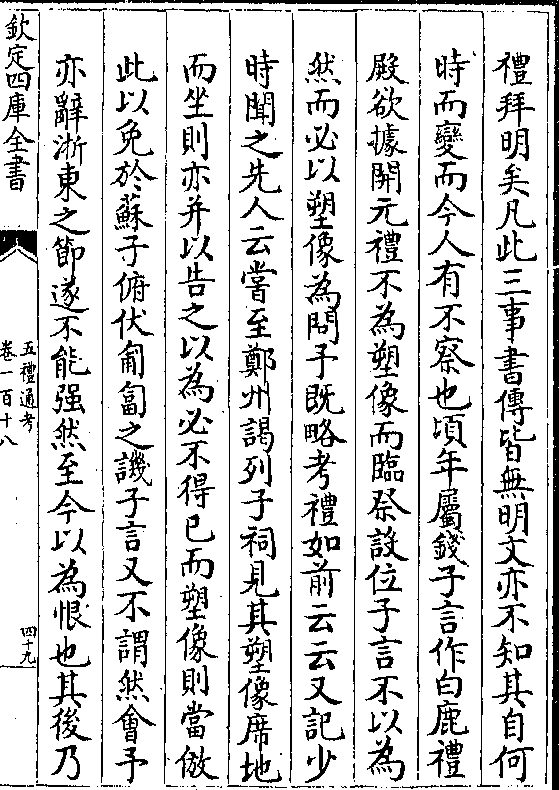 禮拜明矣凡此三事書傳皆無明文亦不知其自何
時而變而今人有不察也頃年屬錢子言作白鹿禮
殿欲據開元禮不為塑像而臨祭設位子言不以為
然而必以塑像為問予既略考禮如前云云又記少
時聞之先人云嘗至鄭州謁列子祠見其塑像席地
而坐則亦并以告之以為必不得已而塑像則當倣
此以免於蘇子俯伏匍匐之譏子言又不謂然會予
亦辭浙東之節遂不能强然至今以為恨也其後乃
欽定四庫全書
五禮通考
卷一百十八
四十九